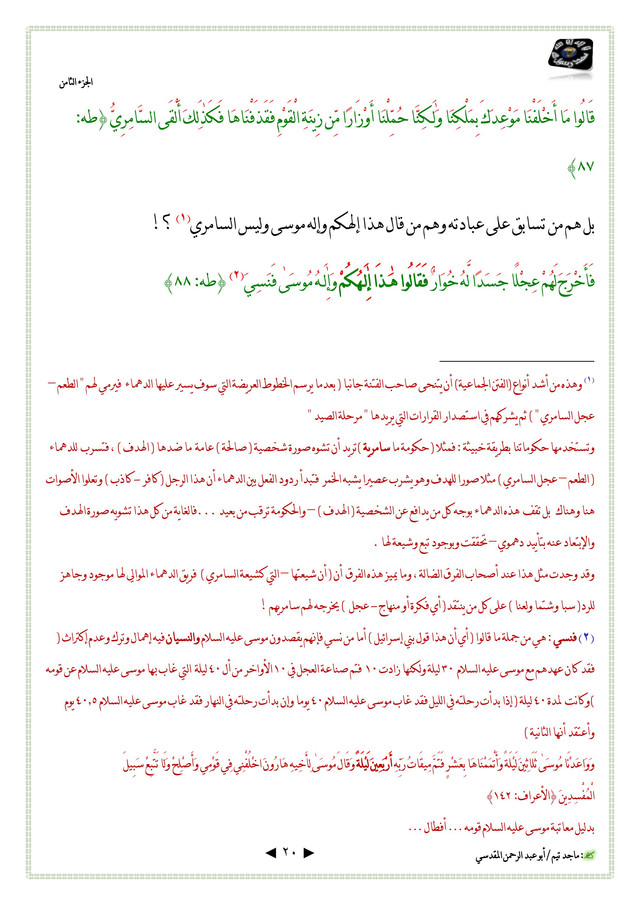 الجزء الثامن
قَالُوا مَا أَخْلَفْنَا مَوْعِدَكَ بِمَلْكِنَا وَلَٰكِنَّا حُمِّلْنَا أَوْزَارًا مِّن زِينَةِ الْقَوْمِ فَقَذَفْنَاهَا فَكَذَٰلِكَ أَلْقَى السَّامِرِيُّ ﴿طه:
٨٧﴾
بل هم من تسابق على عبادته وهم من قال هذا إلهكم وإله موسى وليس السامري (١) ؟ !
فَأَخْرَجَ لَهُمْ عِجْلًا جَسَدًا لَّهُ خُوَارٌ فَقَالُوا هَٰذَا إِلَٰهُكُمْ وَإِلَٰهُ مُوسَىٰ فَنَسِيَ (٢) ﴿طه: ٨٨﴾
(١) وهذه من أشد أنواع (الفتن الجماعية) أن يتنحى صاحب الفتنة جانبا (بعدما يرسم الخطوط العريضة التي سوف يسير عليها الدهماء فيرمي لهم " الطعم –
عجل السامري ") ثم يشركهم في استصدار القرارات التي يريدها " مرحلة الصيد "
وتستخدمها حكوماتنا بطريقة خبيثة : فمثلا (حكومة ما سامرية) تريد أن تشوه صورة شخصية (صالحة) عامة ما ضدها (الهدف) ، فتسرب للدهماء
(الطعم – عجل السامري) مثلا صورا للهدف وهو يشرب عصيرا يشبه الخمر فتبدأ ردود الفعل بين الدهماء أن هذا الرجل (كافر – كاذب) وتعلوا الأصوات
هنا وهناك بل تقف هذه الدهماء بوجه كل من يدافع عن الشخصية (الهدف) – والحكومة ترقب من بعيد ... فالغاية من كل هذا تشويه صورة الهدف
والإبتعاد عنه بتأييد دهموي – تحققت وبوجود تبع وشيعة لها .
وقد وجدت مثل هذا عند أصحاب الفرق الضالة ، وما يميز هذه الفرق أن (أن شيعتها – التي كشيعة السامري) فريق الدهماء الموالي لها موجود وجاهز
للرد (سبا وشتما ولعنا) على كل من ينتقد (أي فكرة أو منهاج - عجل) يخرجه لهم سامريهم !
(٢) فنسي : هي من جملة ما قالوا (أي أن هذا قول بني إسرائيل) أما من نسي فإنهم يقصدون موسى عليه السلام والنسيان فيه إهمال وترك وعدم إكتراث (
فقد كان عهدهم مع موسى عليه السلام ٣٠ ليلة ولكنها زادت ١٠ فتم صناعة العجل في ١٠ الأواخر من أل ٤٠ ليلة التي غاب بها موسى عليه السلام عن قومه
)وكانت لمدة ٤٠ ليلة (إذا بدأت رحلته في الليل فقد غاب موسى عليه السلام ٤٠ يوما وإن بدأت رحلته في النهار فقد غاب موسى عليه السلام ٤٠,٥ يوم
وأعتقد أنها الثانية )
وَوَاعَدْنَا مُوسَىٰ ثَلَاثِينَ لَيْلَةً وَأَتْمَمْنَاهَا بِعَشْرٍ فَتَمَّ مِيقَاتُ رَبِّهِ أَرْبَعِينَ لَيْلَةً وَقَالَ مُوسَىٰ لِأَخِيهِ هَارُونَ اخْلُفْنِي فِي قَوْمِي وَأَصْلِحْ وَلَا تَتَّبِعْ سَبِيلَ
الْمُفْسِدِينَ ﴿الأعراف: ١٤٢﴾
بدليل معاتبة موسى عليه السلام قومه ... أفطال ...
: ماجد تيم / أبو عبد الرحمن المقدسي
٢٠